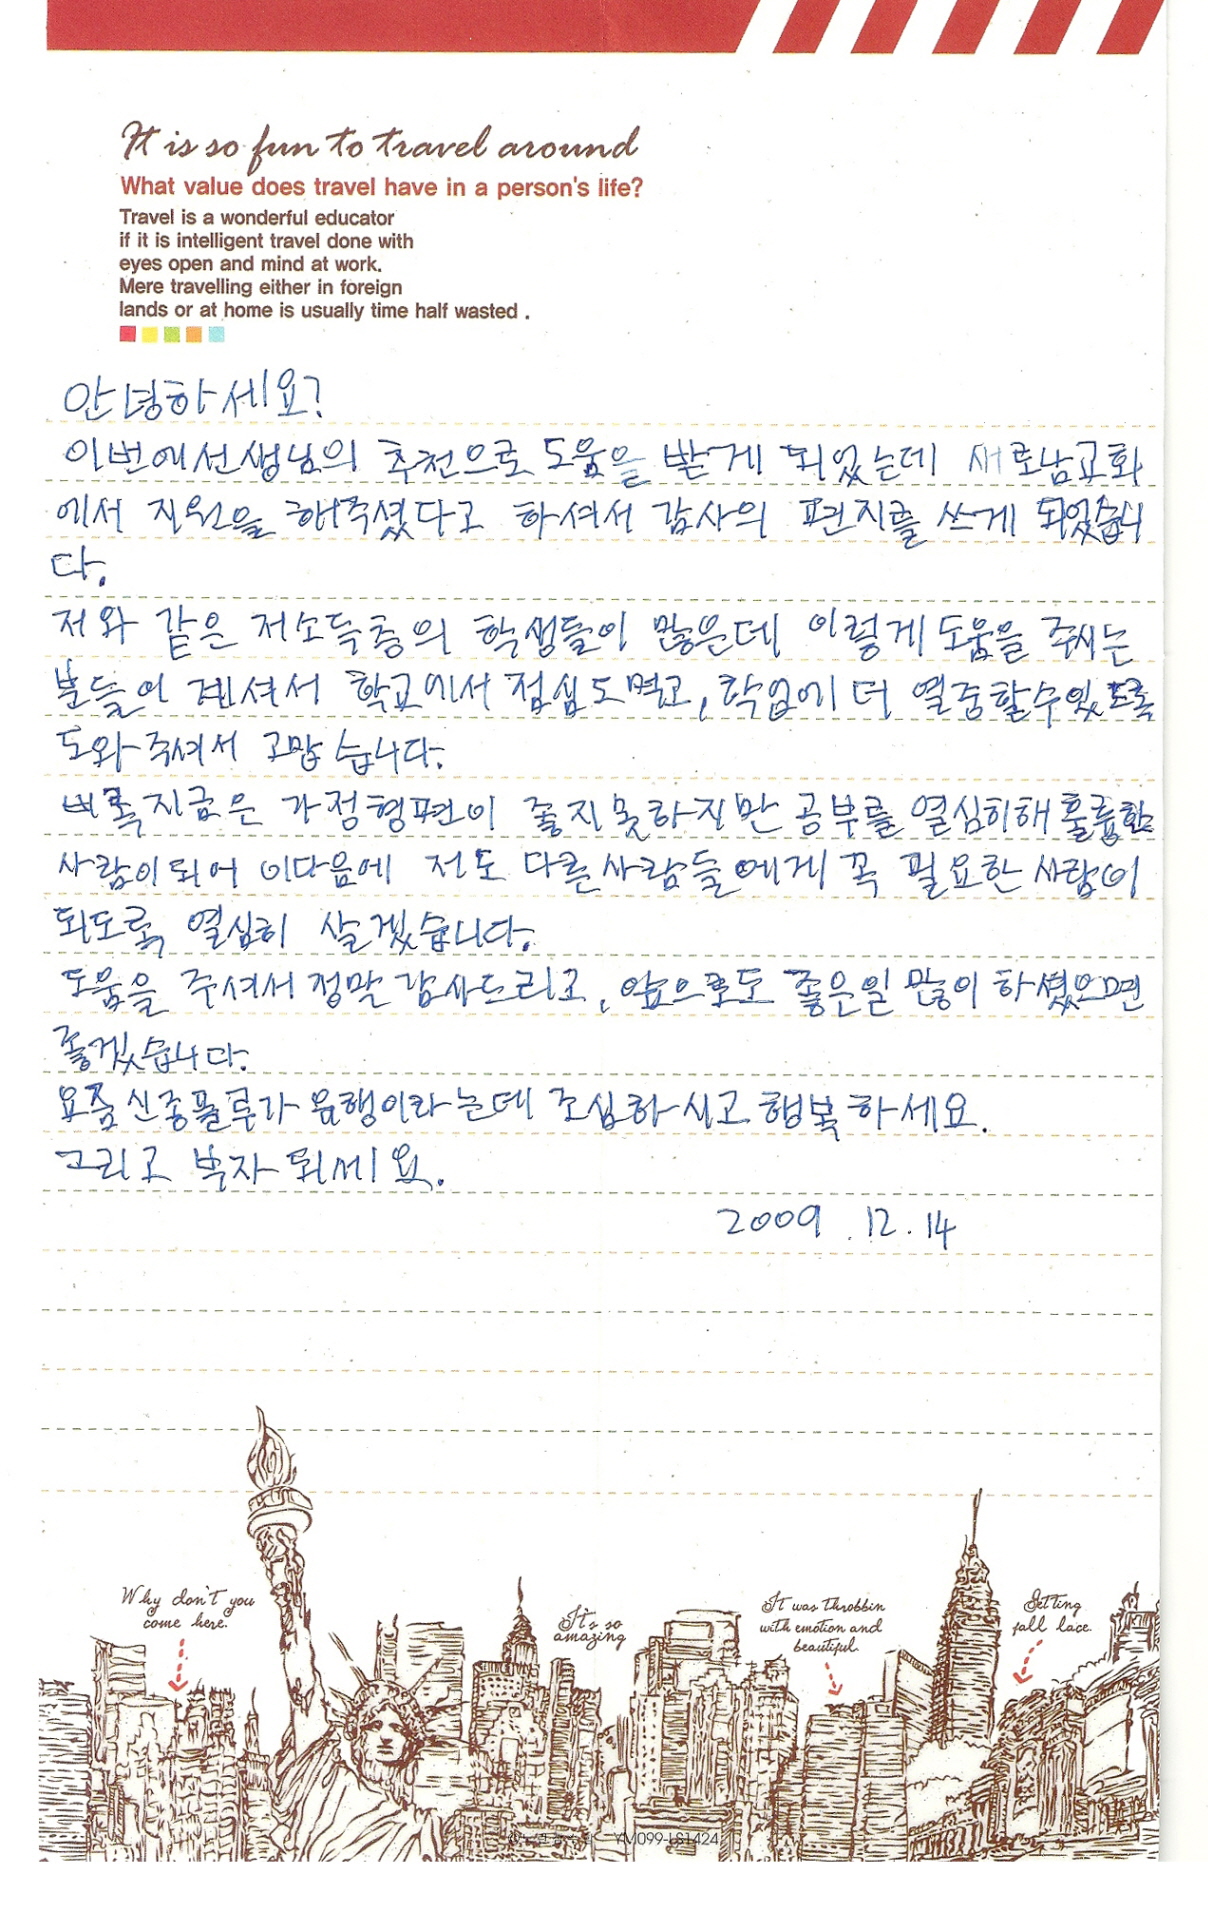 It is so fun to travel around
What value does travel have in a person's life?
Travel is a wonderful educator
if it is intelligent travel done with
eyes open and mind at work.
Mere travelling either in foreign
lands or at home is usually time half wasted .
안녕하세요?
이번에 선생님의 추천으로 도움을 받게 되었는데 새로남교회
에서 지원을 해주셨다고 하셔서 감사의 편지를 쓰게 되었습니
다.
저와 같은 저소득층의 학생들이 많은데 이렇게 도움을 주시는
분들이 계셔서 학교에서 점심도 먹고, 학업에 더 열중할수있도록
도와주셔서 고맙습니다.
비록 지금은 가정형편이 좋지못하지만 공부를 열심히해 훌륭한
사람이 되어 이다음에 저도 다른사람들에게 꼭 필요한 사람이
되도록 열심히 살겠습니다.
도움을 주셔서 정말 감사드리고, 앞으로도 좋은일 많이 하셨으면
좋겠습니다.
요즘 신종플루가 유행이라는데 조심하시고 행복하세요.
그리고 부자되세요.
2009 .12.14
Why don't you
come here.
It's so
amazing
It was throbbin
with emotion and
beautiful.
Getting
fall lace.
YM099-LS1424